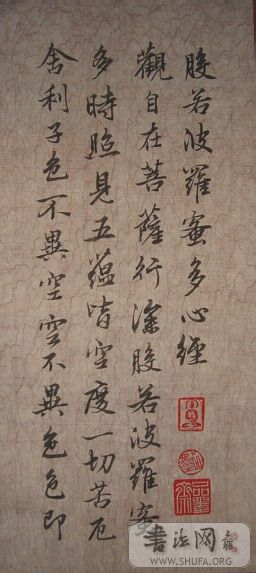 般若波羅蜜多心經
觀自在菩薩行深般若波羅蜜
多時照見五蘊皆空度一切苦厄
舍利子色不異空空不異色色即
書法网
WWW.SHUFA.ORG